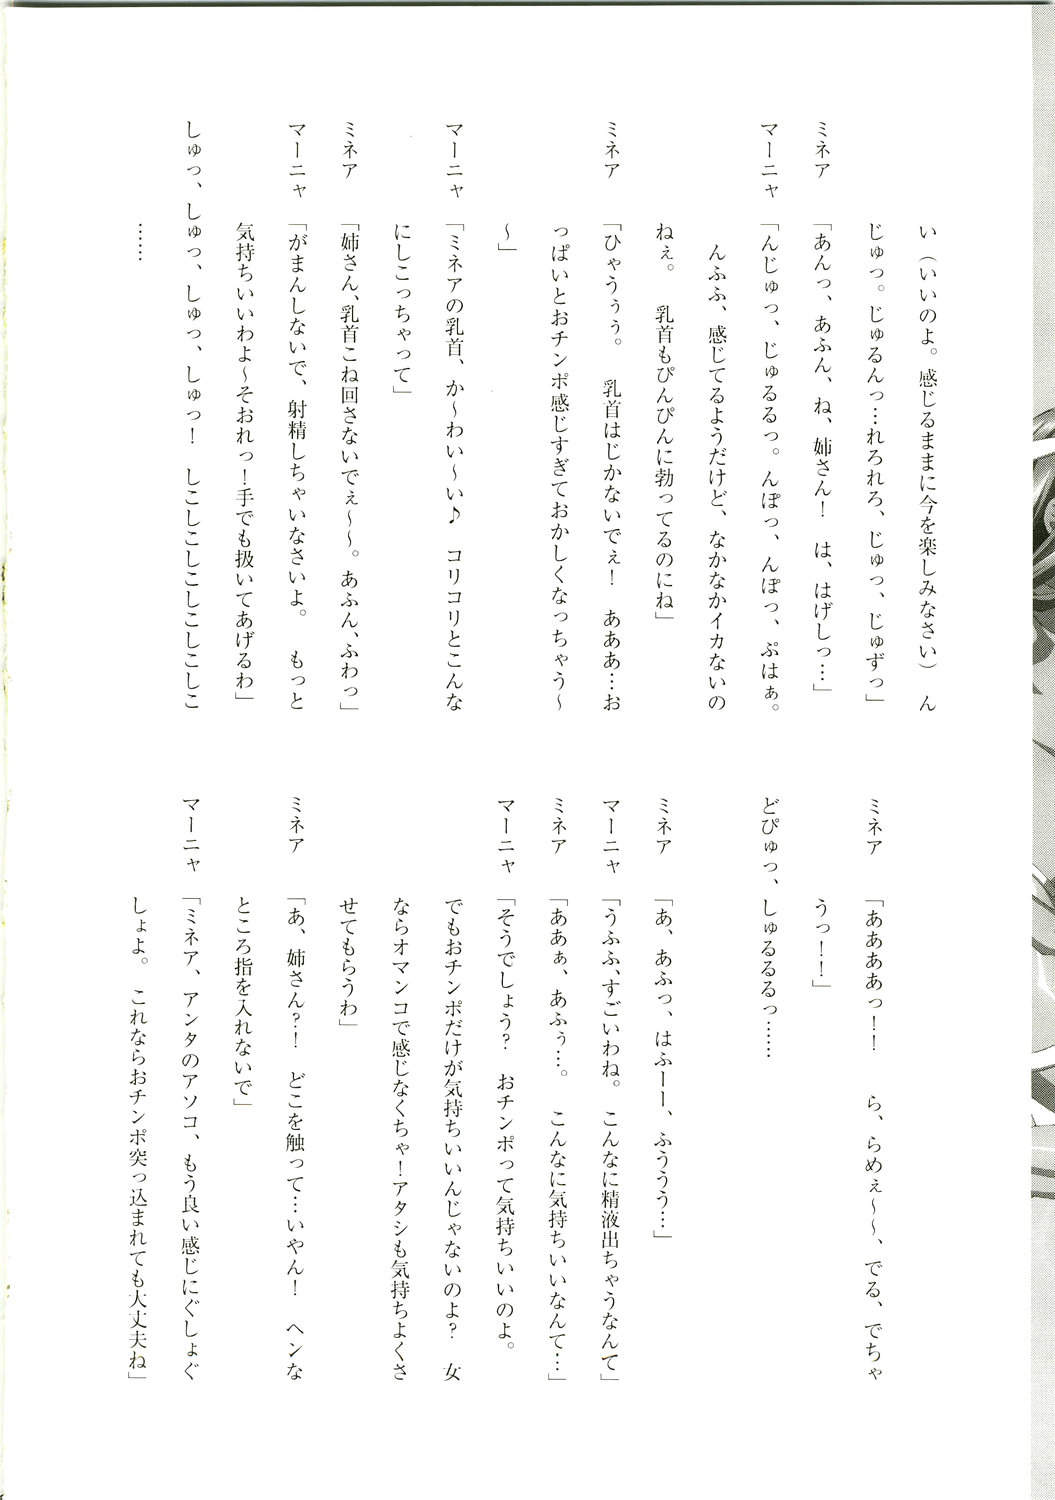 い（いいのよ。感じるままに今を楽しみなさい）　ん
じゅっ。じゅるんっ…れろれろ、じゅっ、じゅずっ」
ミネア　「あんっ、あふん、ね、姉さん！　は、はげしっ…」
マーニャ　「んじゅっ、じゅるるっ。んぽっ、んぽっ、ぷはぁ。
んふふ、感じてるようだけど、なかなかイカないの
ねぇ。　乳首もぴんぴんに勃ってるのにね」
ミネア　「ひゃうぅぅ。　乳首はじかないでぇ！　あああ…お
っぱいとおチンポ感じすぎておかしくなっちゃう～
～」
マーニャ　「ミネアの乳首、か～わい～い♪　コリコリとこんな
にしこっちゃって」
ミネア　「姉さん、乳首こね回さないでぇ～～。あふん、ふわっ」
マーニャ　「がまんしないで、射精しちゃいなさいよ。　もっと
気持ちいいわよ～そおれっ！手でも扱いてあげるわ」
しゅっ、しゅっ、しゅっ、しゅっ！　しこしこしこしこしこ
……
ミネア　「ああああっ！！　ら、らめぇ～～、でる、でちゃ
うっ！！」
どぴゅっ、しゅるるるっ……
ミネア　「あ、あふっ、はふーー、ふううう…」
マーニャ　「うふふ、すごいわね。こんなに精液出ちゃうなんて」
ミネア　「ああぁ、あふぅ…。　こんなに気持ちいいなんて…」
マーニャ　「そうでしょう？　おチンポって気持ちいいのよ。
でもおチンポだけが気持ちいいんじゃないのよ？　女
ならオマンコで感じなくちゃ！アタシも気持ちよくさ
せてもらうわ」
ミネア　「あ、姉さん？！　どこを触って…いやん！　ヘンな
ところ指を入れないで」
マーニャ　「ミネア、アンタのアソコ、もう良い感じにぐしょぐ
しょよ。　これならおチンポ突っ込まれても大丈夫ね」